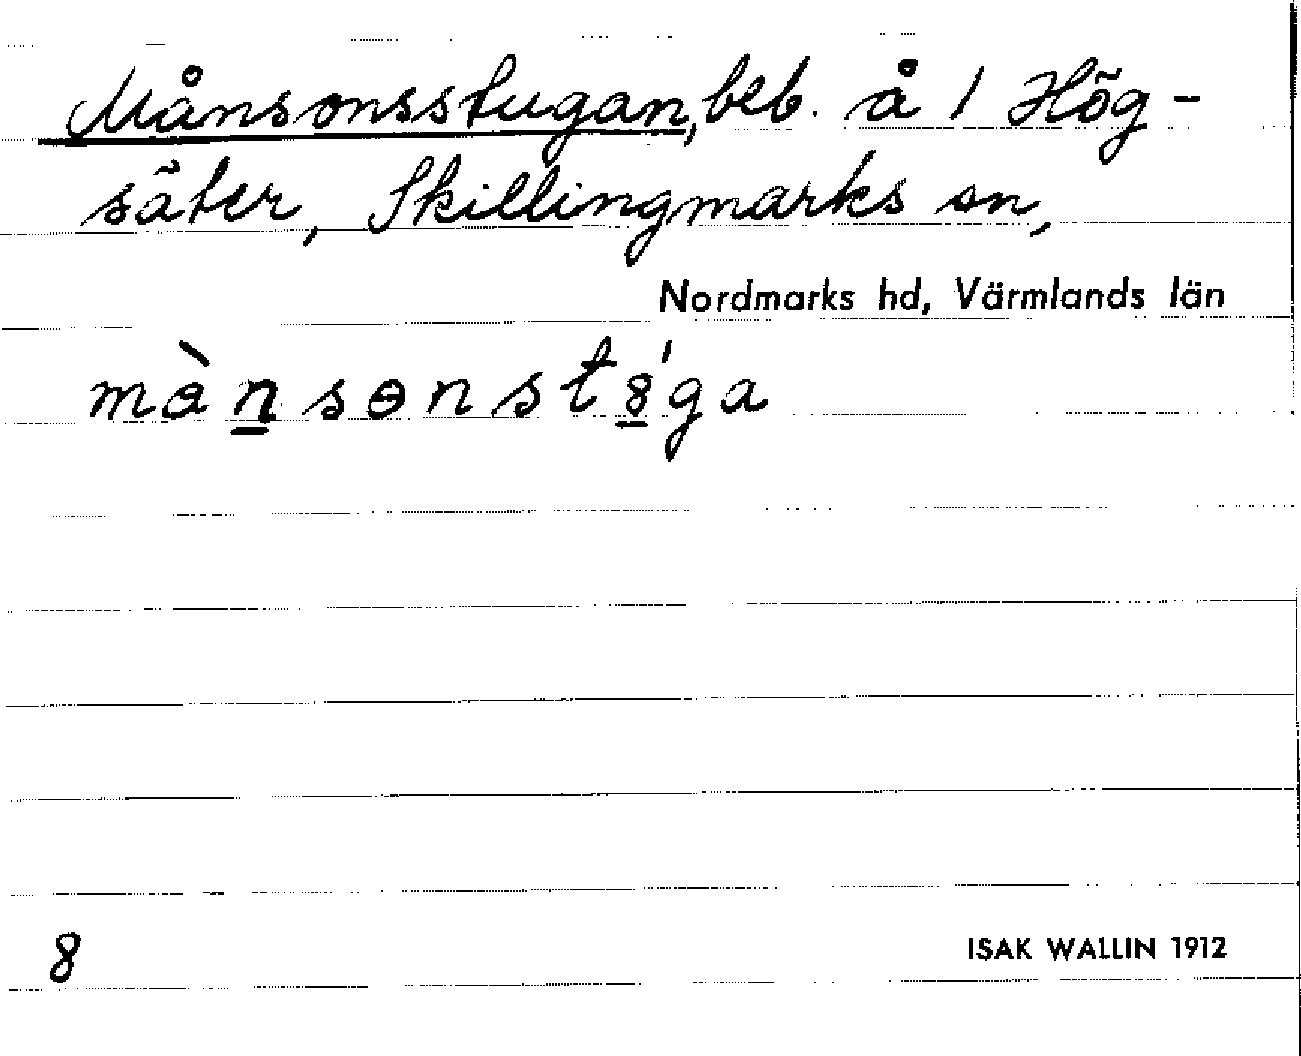 Månsonsstugan, beb. å 1 Hög-
säter, Skillingmarks sn,
Nordmarks hd, Värmlands län
mànsɵnst8́ga
8
ISAK WALLIN 1912